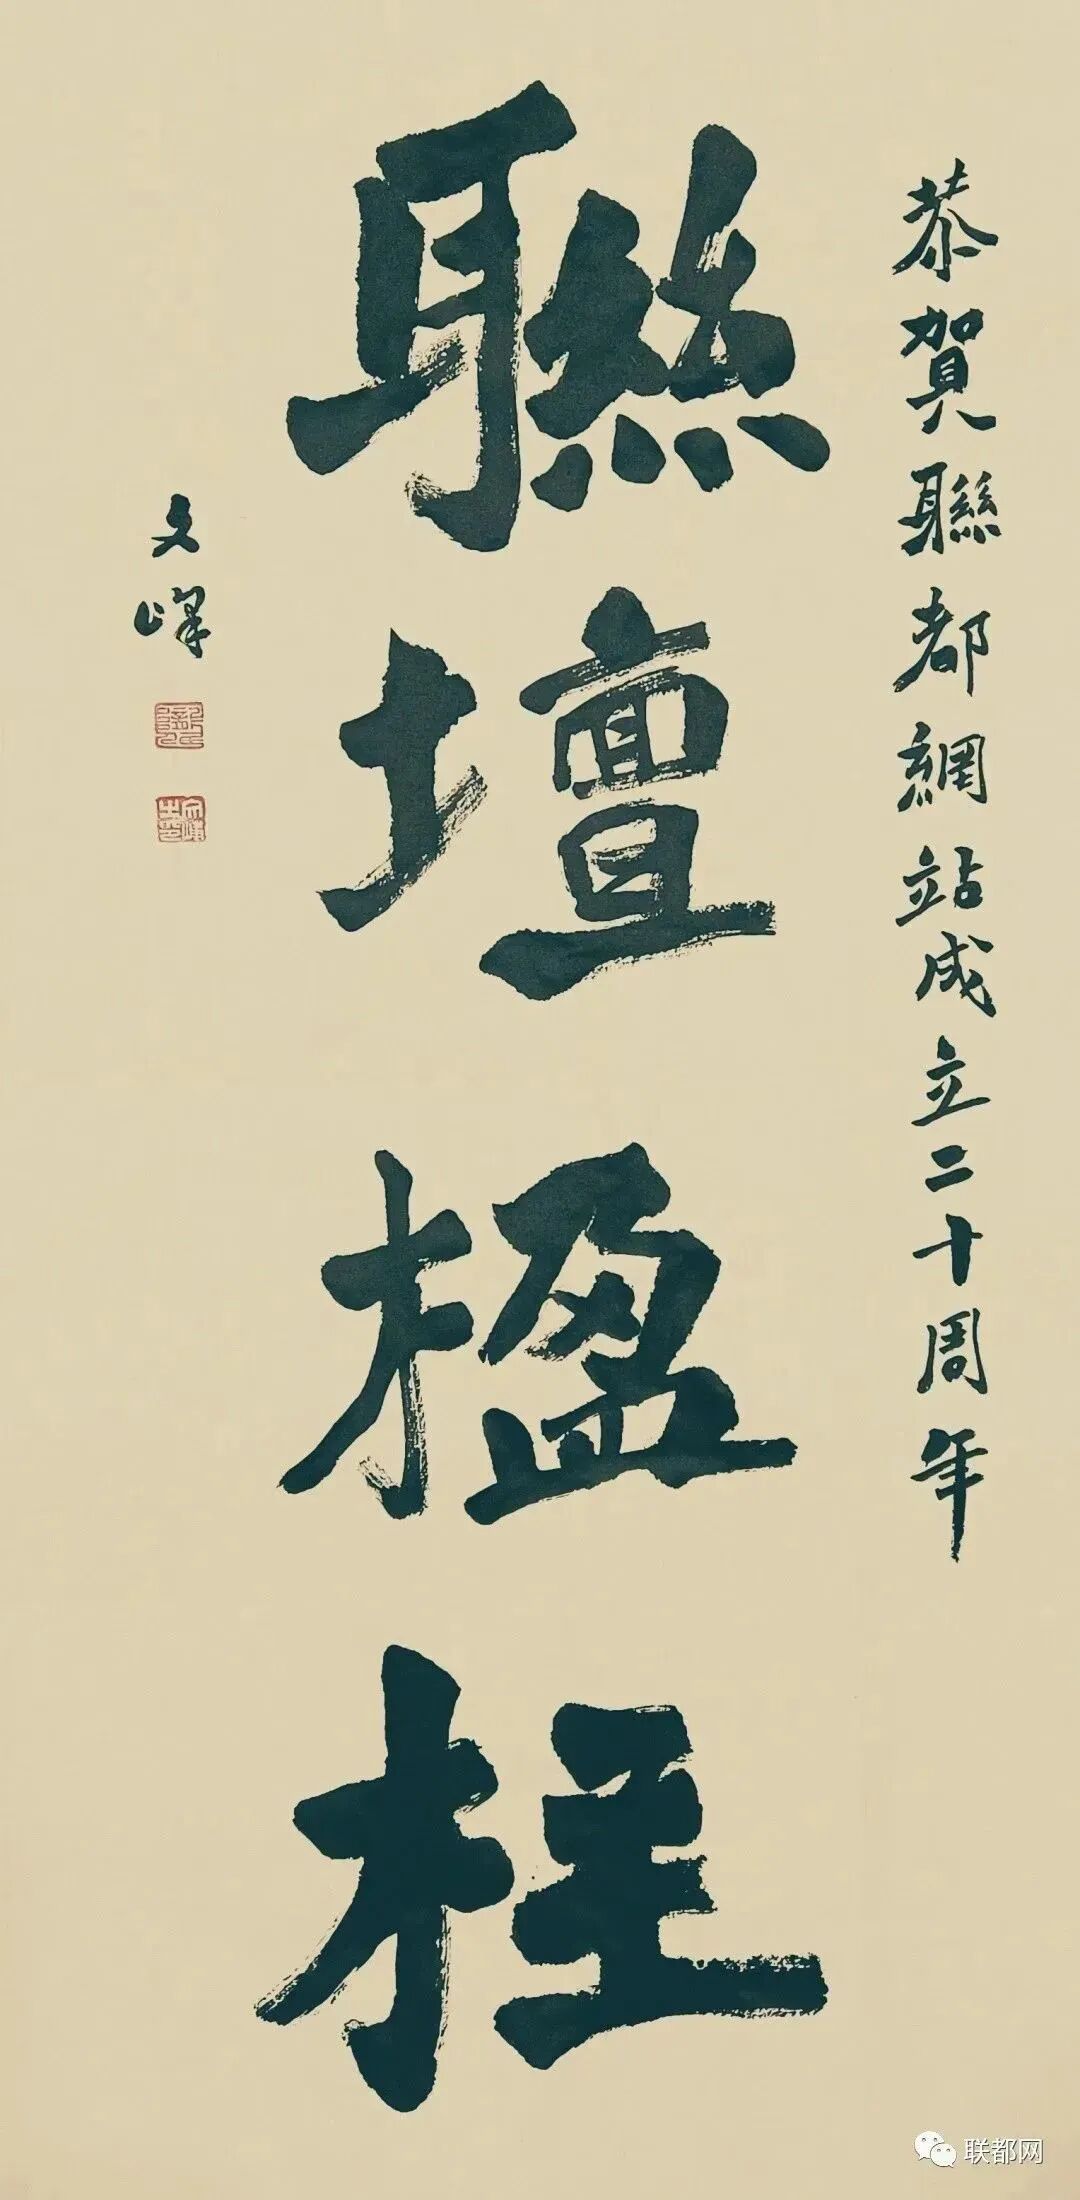 恭賀聯都網站成立二十周年
聯壇楹柱
文嶧
联都网